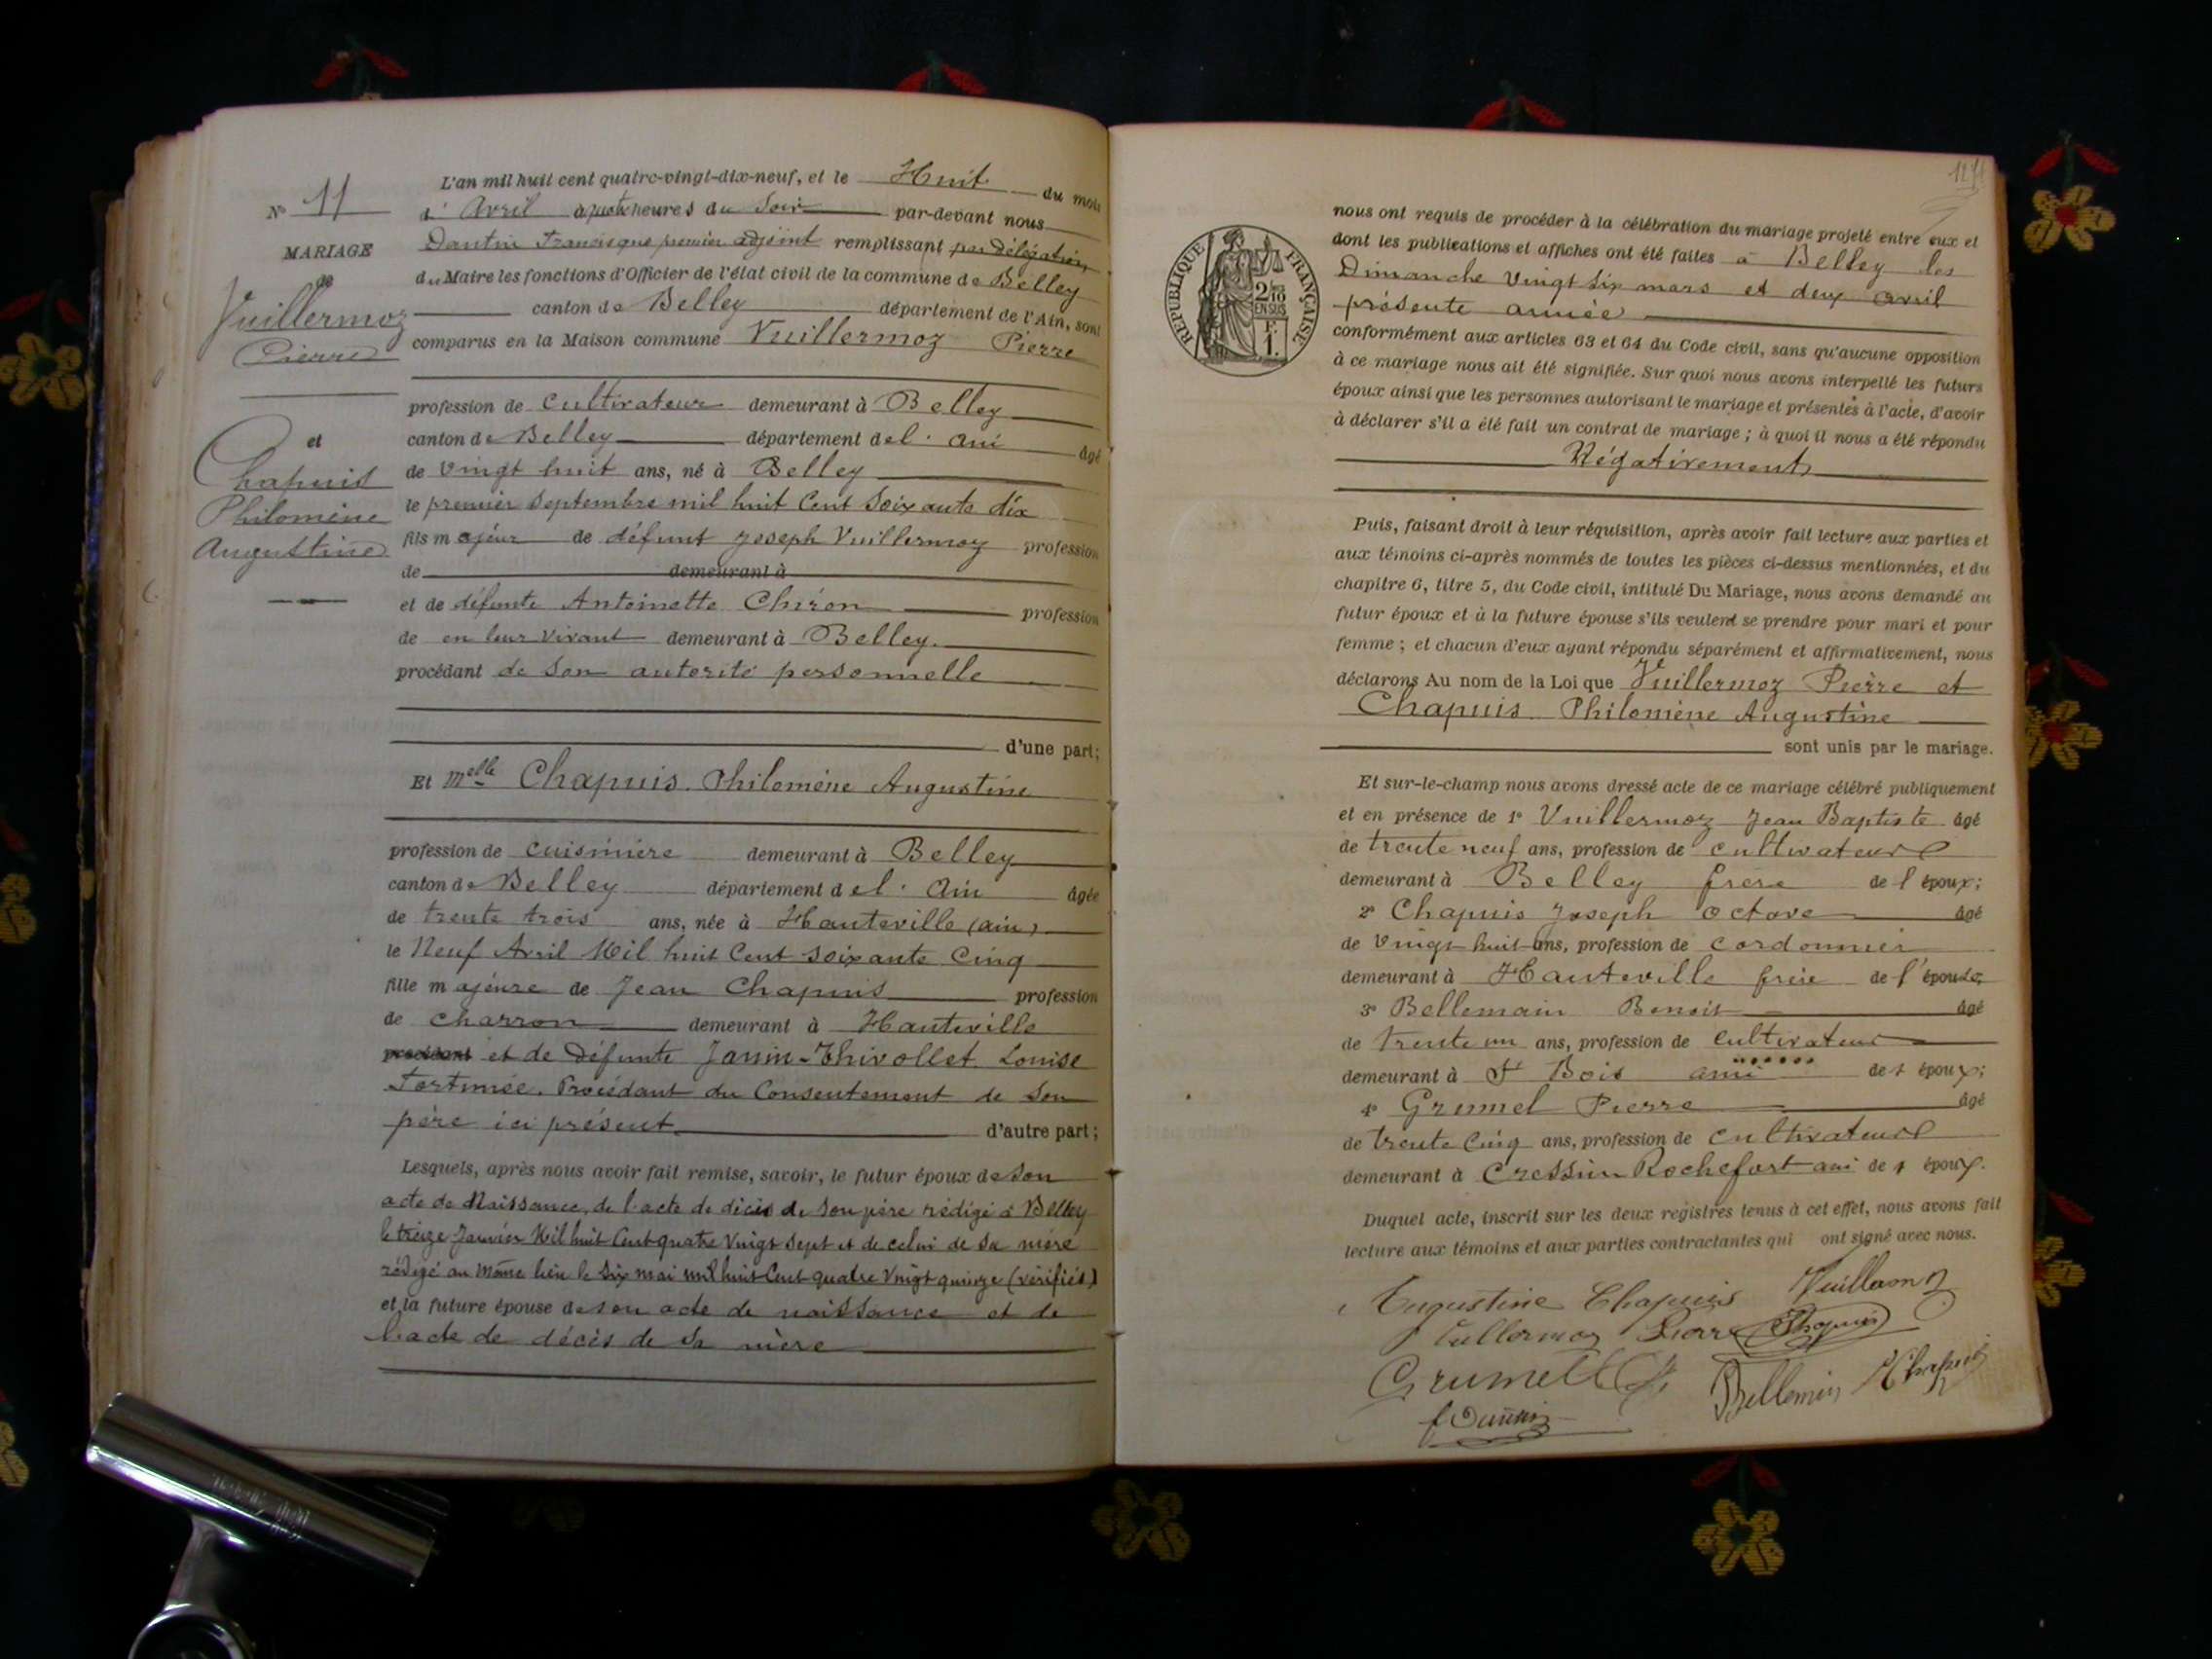 L'an mil huit cent quatre-vingt-dix-neuf, et le Huit du mois
N° 11
d' Avril à quatre heures du Soir par-devant nous
MARIAGE
Dantin Francisque premier adjoint remplissant par délégation
de
du Maire les fonctions d'Officier de l'état civil de la commune de Belley
Vuillermoz
canton de Belley département de l'Ain, sont
Pierre
comparus en la Maison commune Vuillermoz Pierre
profession de Cultivateur demeurant à Belley
et
canton de Belley département de l'Ain âgé
Chapuis
de vingt huit ans, né à Belley
Philomène
le premier Septembre mil huit Cent Soixante dix
Augustine
fils majeur de défunt Joseph Vuillermoz profession
de demeurant à
et de défunte Antoinette Chiron profession
de en leur vivant demeurant à Belley.
procédant de Son autorité personnelle
d'une part;
Et Melle Chapuis. Philomène Augustine
profession de cuisinière demeurant à Belley
canton de Belley département de l'Ain âgée
de trente trois ans, née à Hauteville (ain)
le Neuf Avril Mil huit Cent soixante Cinq
fille majeure de Jean Chapuis profession
de Charron demeurant à Hauteville
procédant et de Défunte Janin-Thivollet Louise
Fortunée. Procédant du Consentement de Son
père ici présent d'autre part;
Lesquels, après nous avoir fait remise, savoir, le futur époux de Son
acte de Naissance, de l'acte de décès de Son père rédigé à Belley
le treize Janvier Mil huit Cent quatre Vingt Sept et de celui de Sa mère
rédigé au même lieu le Six mai mil huit Cent quatre Vingt quinze (vérifiés)
et la future épouse de son acte de naissance et de
l'acte de décès de Sa mère
nous ont requis de procéder à la célébration du mariage projeté entre eux et
dont les publications et affiches ont été faites à Belley les
Dimanche Vingt Six mars et deux avril
présente année
conformément aux articles 63 et 64 du Code civil, sans qu'aucune opposition
à ce mariage nous ait été signifiée. Sur quoi nous avons interpellé les futurs
époux ainsi que les personnes autorisant le mariage et présentes à l'acte, d'avoir
à déclarer s'il a été fait un contrat de mariage ; à quoi il nous a été répondu
Négativement
RÉPUBLIQUE FRANÇAISE
2/10
EN SUS
F.
1.
Puis, faisant droit à leur réquisition, après avoir fait lecture aux parties et
aux témoins ci-après nommés de toutes les pièces ci-dessus mentionnées, et du
chapitre 6, titre 5, du Code civil, intitulé Du Mariage, nous avons demandé au
futur époux et à la future épouse s'ils veulent se prendre pour mari et pour
femme ; et chacun d'eux ayant répondu séparément et affirmativement, nous
déclarons Au nom de la Loi que Vuillermoz Pierre et
Chapuis Philomène Augustine
sont unis par le mariage.
Et sur-le-champ nous avons dressé acte de ce mariage célébré publiquement
et en présence de 1° Vuillermoz Jean Baptiste âgé
de trente neuf ans, profession de cultivateur
demeurant à Belley frère de l'époux;
2° Chapuis Joseph Octave âgé
de Vingt huit ans, profession de cordonnier
demeurant à Hauteville frère de l'épouse;
3° Bellemain Benoit âgé
de trente un ans, profession de cultivateur
demeurant à St Bois ami de l'époux;
4° Grumel Pierre âgé
de trente Cinq ans, profession de cultivateur
demeurant à Cressin Rochefort ami de l'époux.
Duquel acte, inscrit sur les deux registres tenus à cet effet, nous avons fait
lecture aux témoins et aux parties contractantes qui ont signé avec nous.
Augustine Chapuis Vuillermoz
Vullermoz Pierre Chapuis
Grumel Bellemin Chapuis
f Dantin